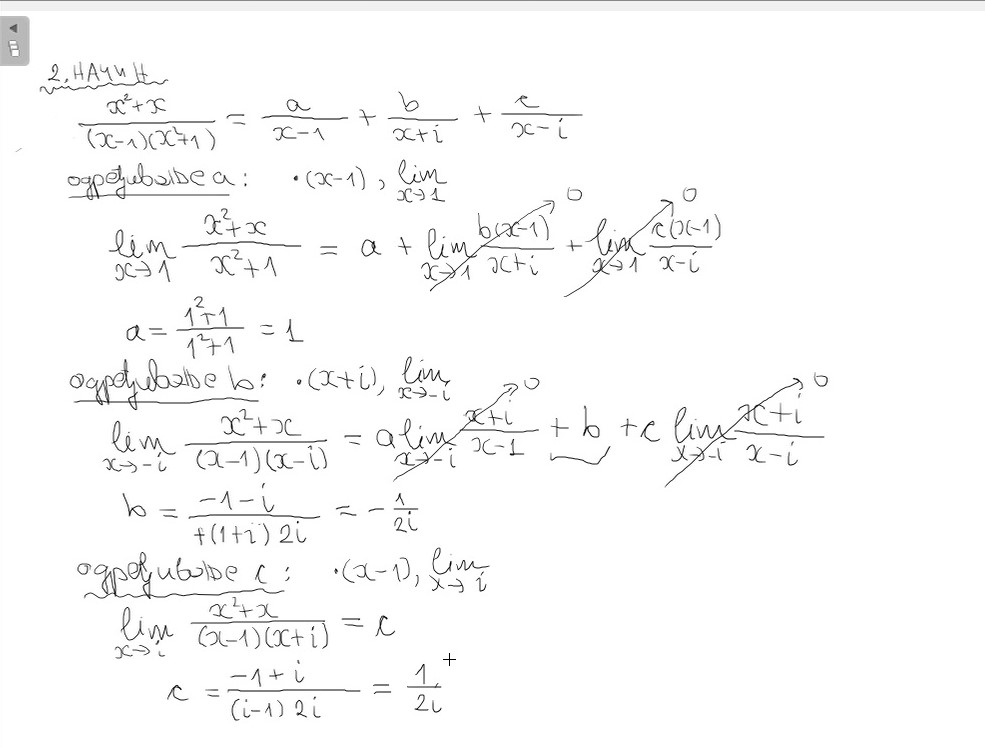 2. НАЧИН
\frac{x^2+x}{(x-1)(x^2+1)} = \frac{a}{x-1} + \frac{b}{x+i} + \frac{c}{x-i}
одређивање a: ·(x-1), \lim_{x→1}
\lim_{x→1} \frac{x^2+x}{x^2+1} = a + \lim_{x→1} \frac{b(x-1)}{x+i} → 0 + \lim_{x→1} \frac{c(x-1)}{x-i} → 0
a = \frac{1^2+1}{1^2+1} = 1
одређивање b: ·(x+i), \lim_{x→-i}
\lim_{x→-i} \frac{x^2+x}{(x-1)(x-i)} = a \lim_{x→-i} \frac{x+i}{x-1} → 0 + b + c \lim_{x→-i} \frac{x+i}{x-i} → 0
b = \frac{-1-i}{+(1+i) 2i} = -\frac{1}{2i}
одређивање c: ·(x-i), \lim_{x→i}
\lim_{x→i} \frac{x^2+x}{(x-1)(x+i)} = c
c = \frac{-1+i}{(i-1) 2i} = \frac{1}{2i}